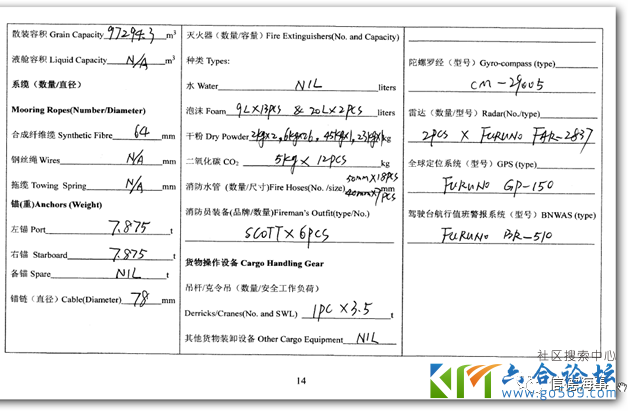 散装容积 Grain Capacity 97294.3 m³
液舱容积 Liquid Capacity N/A m³
系缆（数量/直径）
Mooring Ropes(Number/Diameter)
合成纤维缆 Synthetic Fibre 64 mm
钢丝绳 Wires N/A mm
拖缆 Towing Spring N/A mm
锚(重)Anchors (Weight)
左锚 Port 7.875 t
右锚 Starboard 7.875 t
备锚 Spare NIL t
锚链（直径）Cable(Diameter) 78 mm
灭火器（数量/容量）Fire Extinguishers(No. and Capacity)
种类 Types:
水 Water NIL liters
泡沫 Foam 9L×13PCS & 20L×2PCS liters
干粉 Dry Powder kg
二氧化碳 CO₂ 5kg × 12PCS kg
消防水管（数量/尺寸）Fire Hoses(No. /size) 50mm×18PCS 40mm×7PCS mm
消防员装备(品牌/数量)Fireman's Outfit(type/No.)
SCOTT×6PCS
货物操作设备 Cargo Handling Gear
吊杆/克令吊（数量/安全工作负荷）
Derricks/Cranes(No. and SWL) 1PC×3.5 t
其他货物装卸设备 Other Cargo Equipment NIL
陀螺罗经（型号）Gyro-compass (type)
雷达（数量/型号）Radar(No./type)
2PCS × FURUNO FAR-2837
全球定位系统（型号）GPS (type)
FURUNO GP-150
驾驶台航行值班警报系统（型号）BNWAS (type)
FURUNO BR-510
14
社区搜索中心
KM 六合论坛
信德海事
www.go569.com